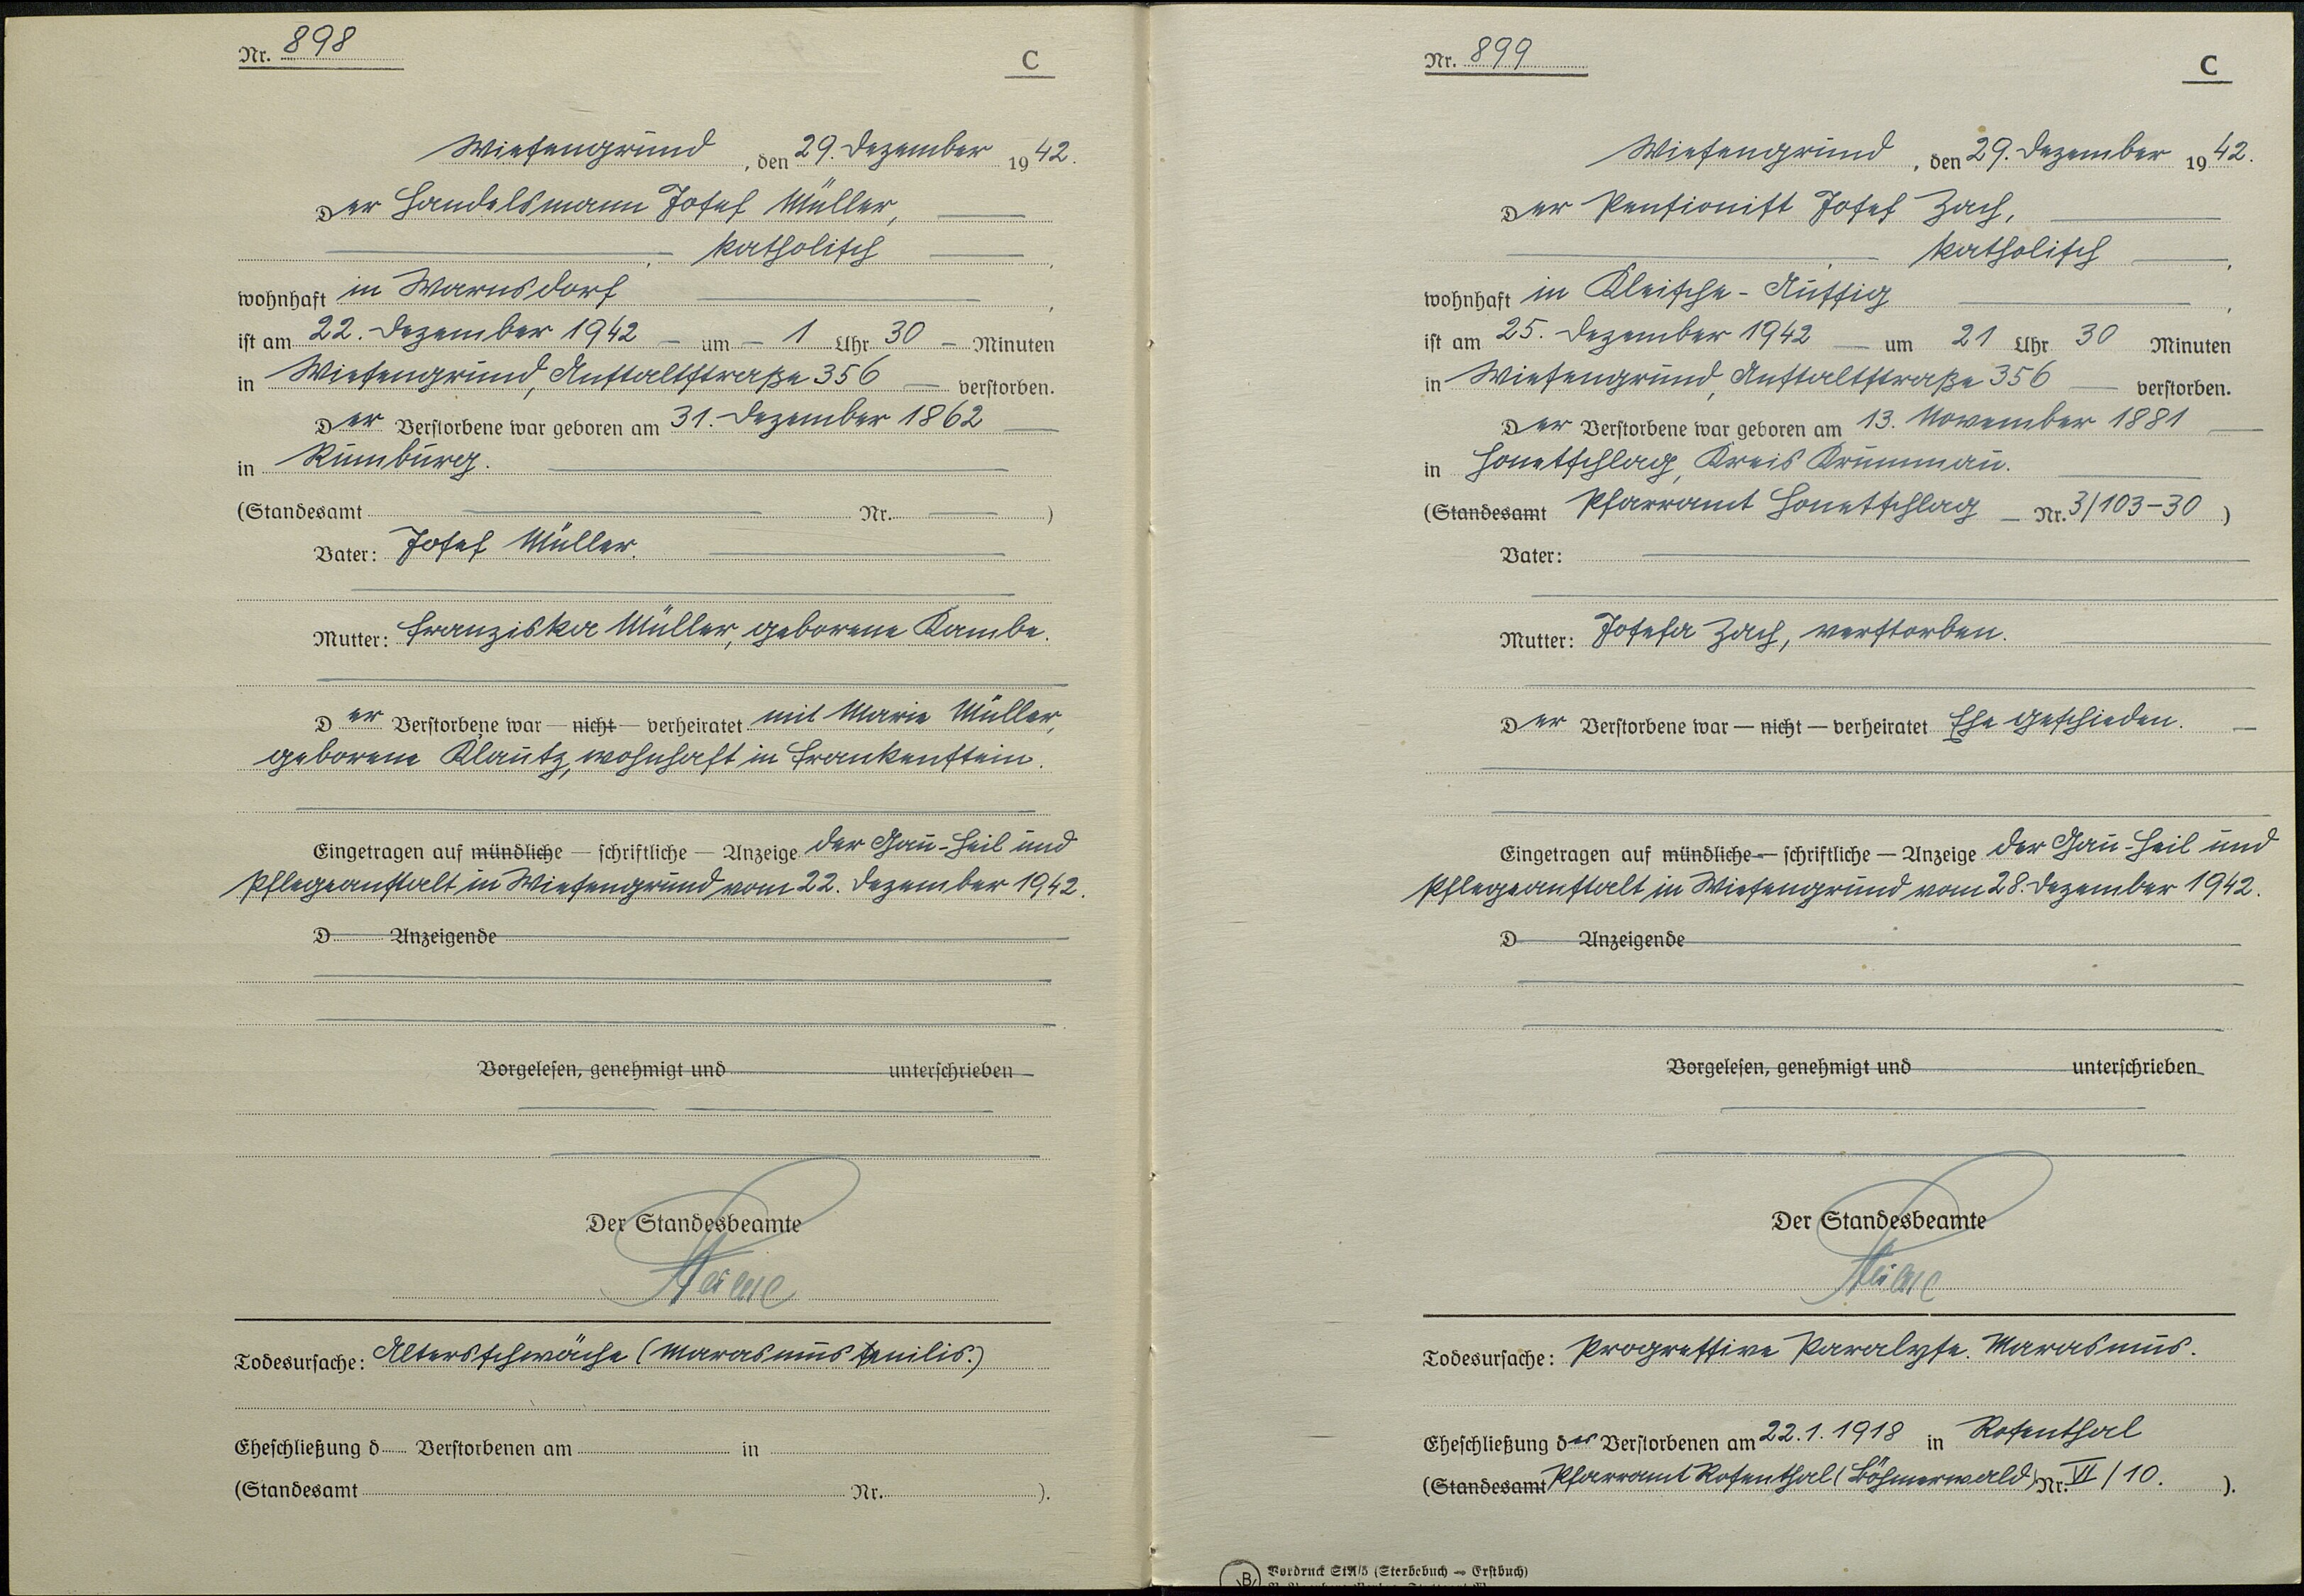 Nr. 898
C
Wiesengrund, den 29. Dezember 1942.
Der Handelsmann Josef Müller,
, katholisch ,
wohnhaft in Warnsdorf ,
ist am 22. Dezember 1942 um 1 Uhr 30 Minuten
in Wiesengrund, Anstaltstraße 356 verstorben.
Der Verstorbene war geboren am 31. Dezember 1862
in Rumburg.
(Standesamt Nr. )
Vater: Josef Müller.
Mutter: Franziska Müller, geborene Kambe.
Der Verstorbene war — nicht — verheiratet mit Marie Müller,
geborene Klautz, wohnhaft in Frankenstein.
Eingetragen auf mündliche — schriftliche — Anzeige der Gau-Heil und
Pflegeanstalt in Wiesengrund vom 22. Dezember 1942.
D Anzeigende
Vorgelesen, genehmigt und unterschrieben
Der Standesbeamte
Todesursache: Altersschwäche (Marasmus senilis.)
Eheschließung d Verstorbenen am in
(Standesamt Nr. ).
Nr. 899
C
Wiesengrund, den 29. Dezember 1942.
Der Pensionist Josef Zach,
, katholisch ,
wohnhaft in Kleische-Aussig ,
ist am 25. Dezember 1942 um 21 Uhr 30 Minuten
in Wiesengrund, Anstaltstraße 356 verstorben.
Der Verstorbene war geboren am 13. November 1881
in Honetschlag, Kreis Krummau.
(Standesamt Pfarramt Honetschlag Nr. 3/103-30 )
Vater:
Mutter: Josefa Zach, verstorben.
Der Verstorbene war — nicht — verheiratet Ehe geschieden.
Eingetragen auf mündliche — schriftliche — Anzeige der Gau-Heil und
Pflegeanstalt in Wiesengrund vom 28. Dezember 1942.
D Anzeigende
Vorgelesen, genehmigt und unterschrieben
Der Standesbeamte
Todesursache: Progressive Paralyse. Marasmus.
Eheschließung des Verstorbenen am 22.1.1918 in Rosenthal
(Standesamt Pfarramt Rosenthal (Böhmerwald) Nr. VI/10. ).
B Vordruck StA/5 (Sterbebuch — Erstbuch)